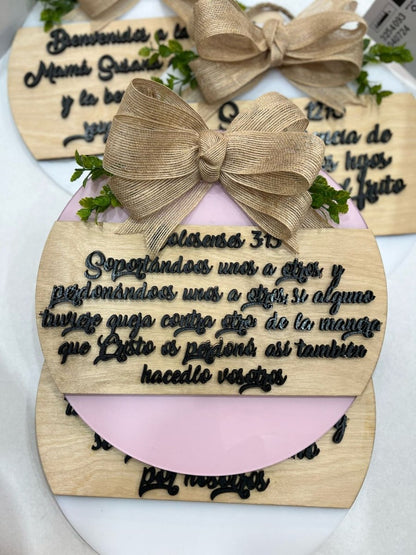 Bienvenidos a la
Mamá Susana
y la
12:16
de
hijos
fruto
Colosenses 3:13
Soportándoos unos a otros, y
perdonándoos unos a otros, si alguno
tuviere queja contra otro: de la manera
que Cristo os perdonó, así también
hacedlo vosotros
y
por nosotros